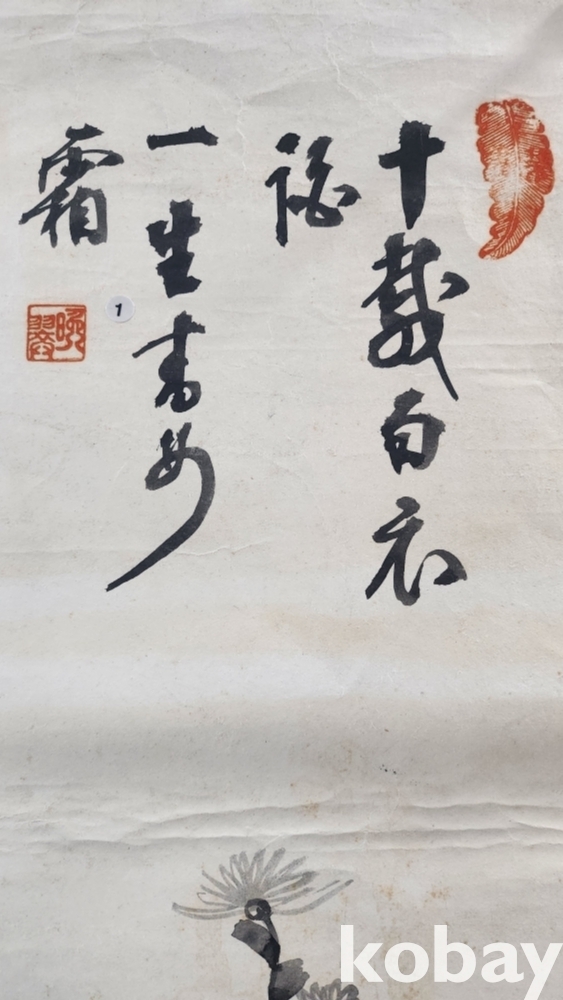 十載白衣
一生青女
霜
1
kobay